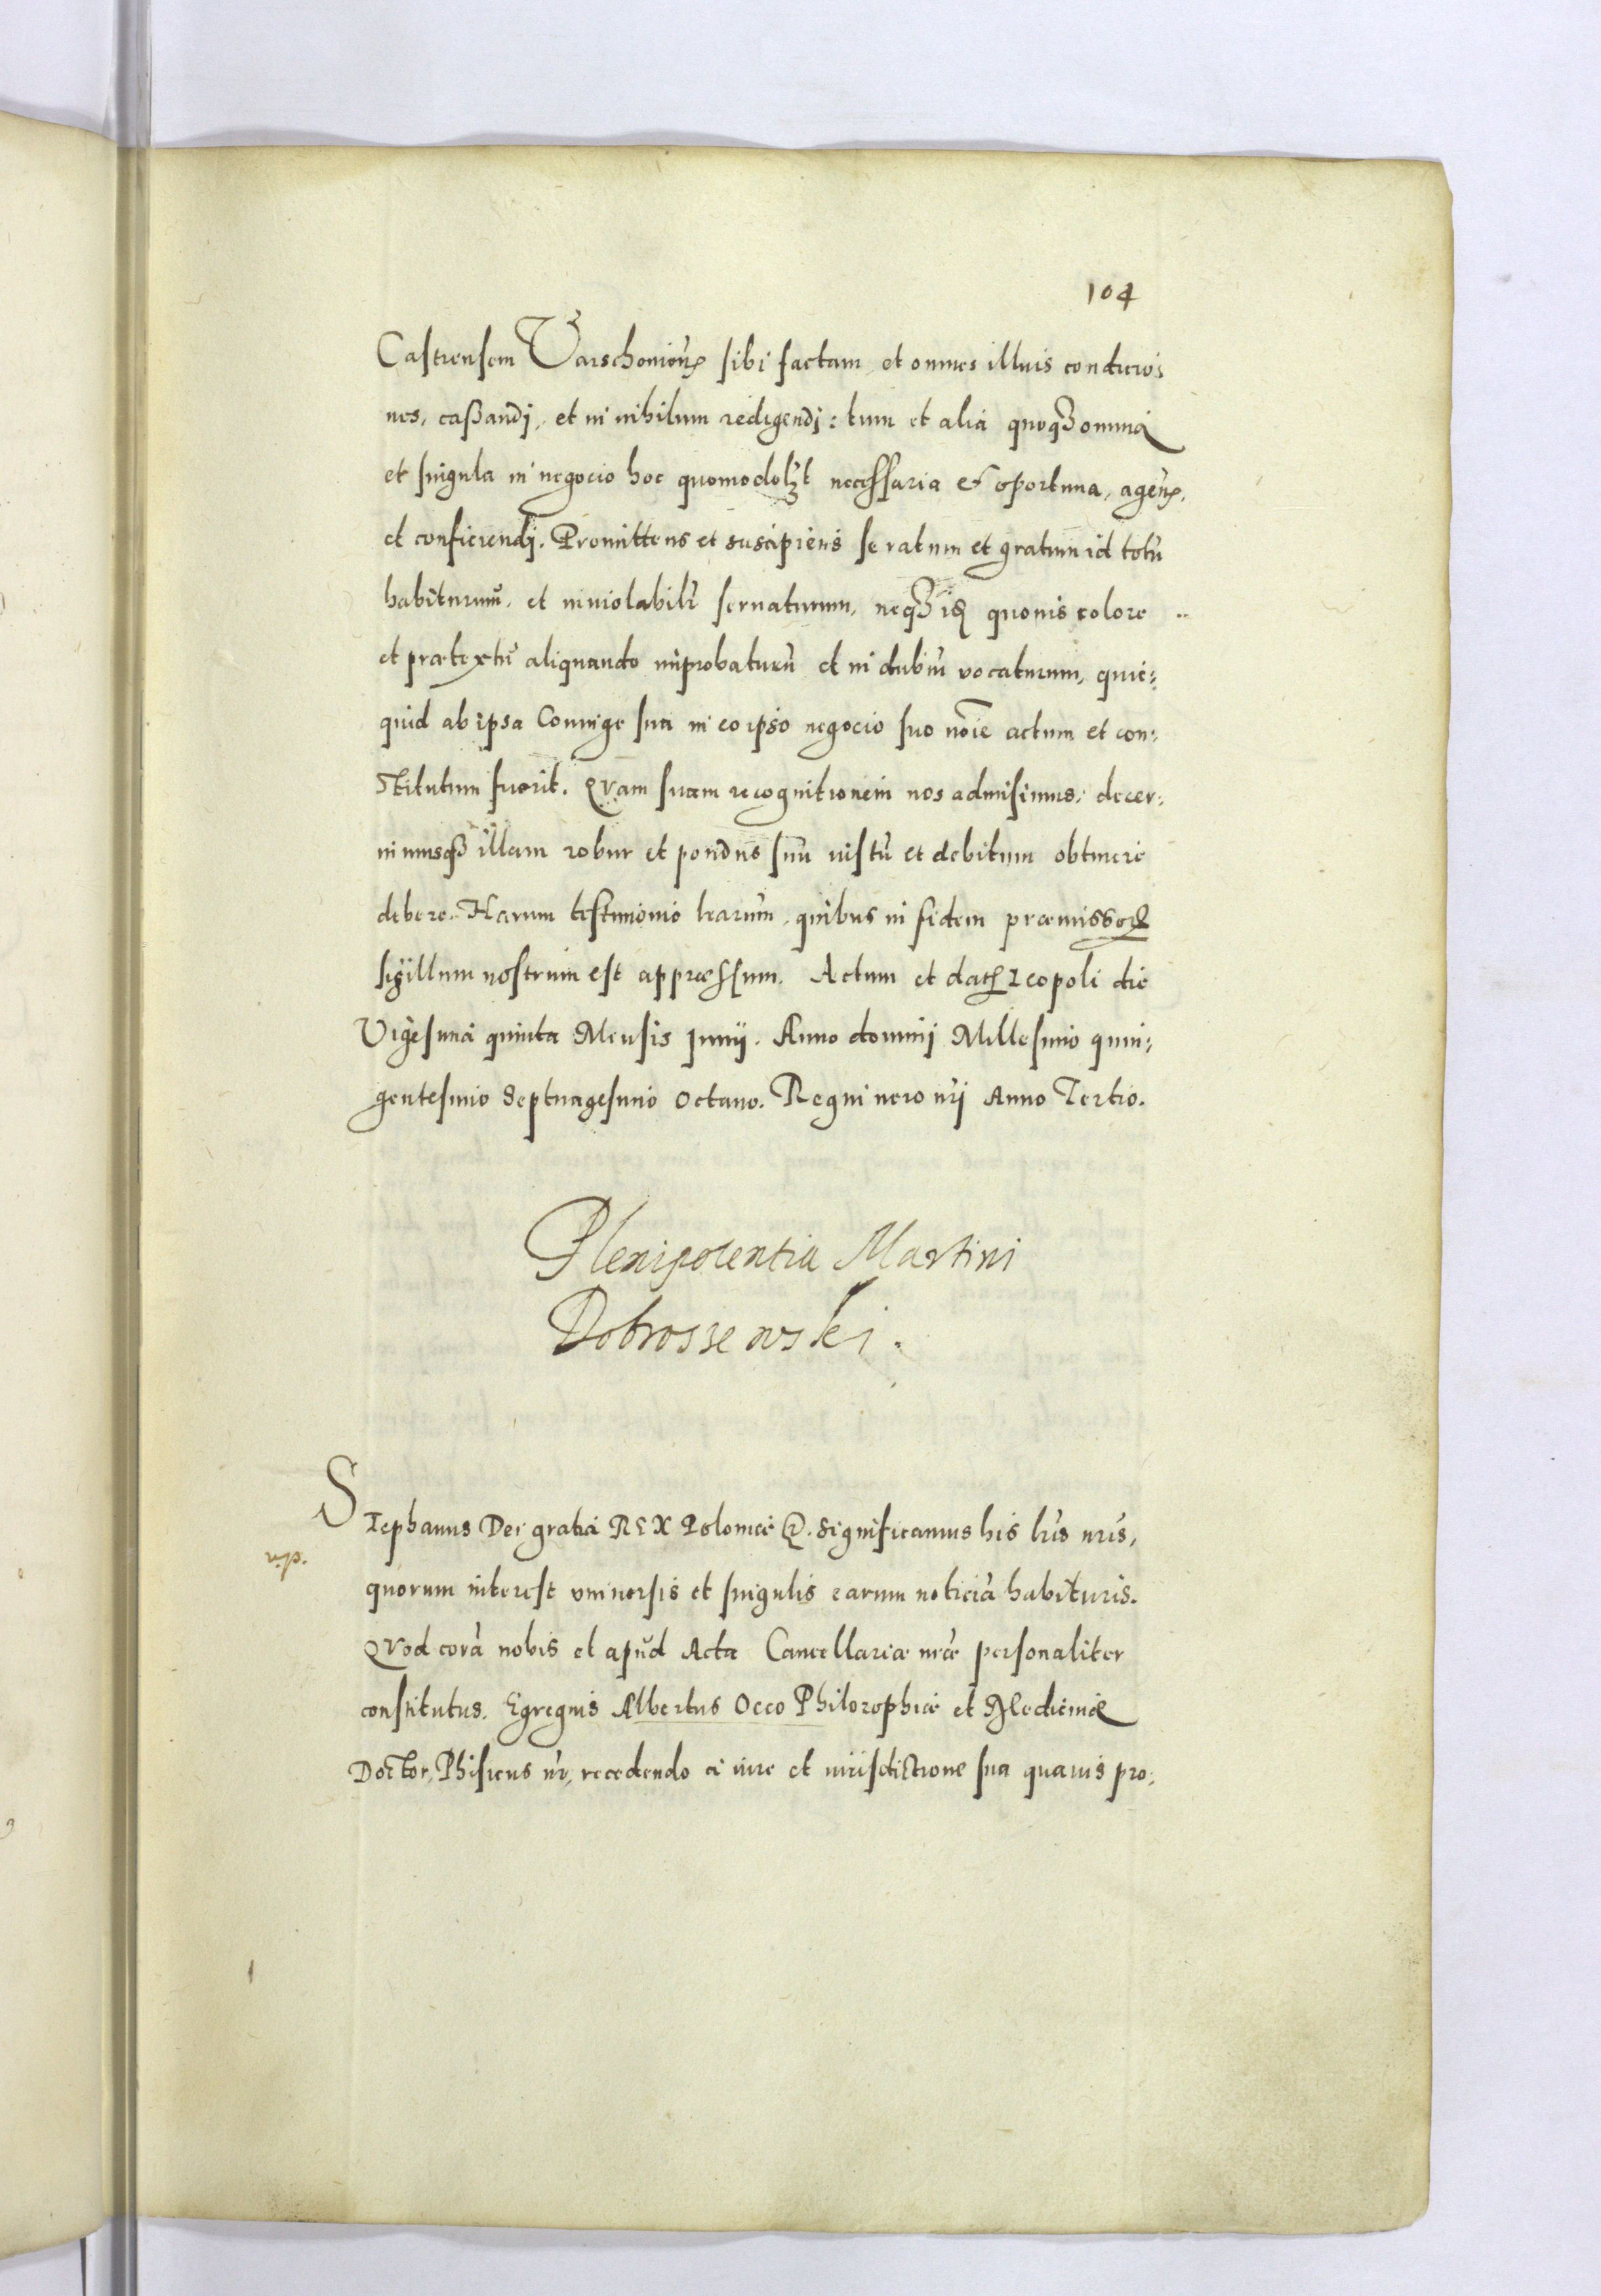 104
Castrensem Varschouien̄ sibi factam, et omnes illius condicio:
nes, caßandj, et in nihilum redigendj: tum et alia quoqȝ omnia
et singula in negocio hoc quomodolȝt necessaria et oportuna, agen̄.
et conficiendj. Promittens et suscipiens se ratum et gratum id totū
habiturum̄, et inuiolabilr̄ seruaturum, neqȝ id quouis colore
et prætextu aliquando improbaturū et in dubiū vocaturum, quic:
quid ab ipsa Coniuge sua in eo ipso negocio suo noīe actum et con:
stitutum fuerit. Quam suam recognitionem nos admisimus, decer:
nimusqȝ illam robur et pondus suū iustū et debitum obtinere
debere. Harum testimonio lr̄arum, quibus in fidem præmissorꝝ
sigillum nostrum est appræssum. Actum et datꝭ Leopoli die
Vigesima quinta Mensis Junij. Anno dominj Millesimo quin:
gentesimo Septuagesimo Octauo. Regni uero nr̄i Anno Tertio.
Plenipotentia Martini
Dobrossewski.
Stephanus Dei gratia REX Poloniæ &. Significamus his lr̄is nr̄is,
quorum interest vniuersis et singulis earum noticiā habituris.
Quod corā nobis et apud Acta Cancellariæ nr̄æ personaliter
constitutus. Egregius Albertus Occo Philozophiæ et Medicinæ
Doctor, Phisicus nr̄, recedendo a iure et iurisdictione sua quauis pro: